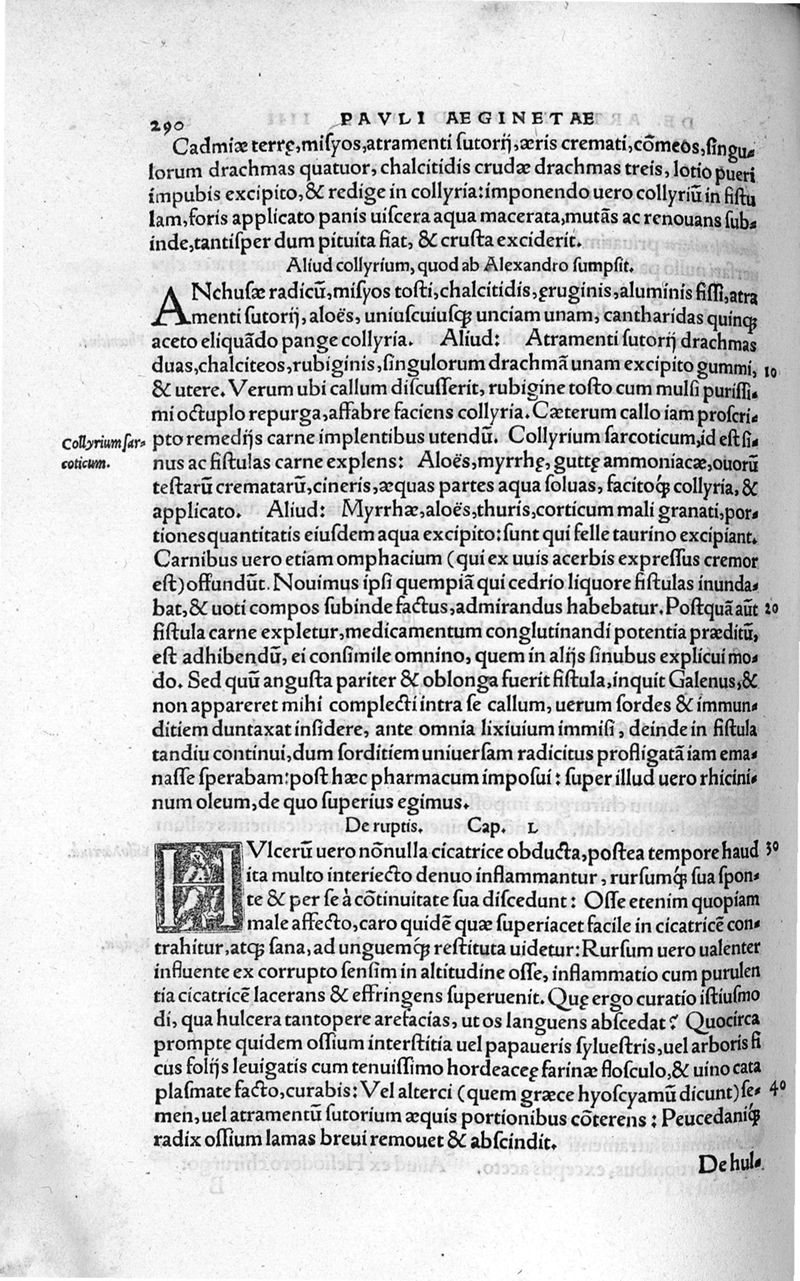 290 PAVLI AEGINETAE
Cadmiæ terrę,misyos,atramenti sutorij,æris cremati,cōmeos,singu-
lorum drachmas quatuor, chalcitidis crudæ drachmas treis, lotio pueri
impubis excipito,& redige in collyria:imponendo uero collyriū in fistu
lam,foris applicato panis uiscera aqua macerata,mutās ac renouans sub-
inde,tantisper dum pituita fiat, & crusta exciderit.
Aliud collyrium, quod ab Alexandro sumpsit.
ANchusæ radicū,misyos tosti,chalcitidis,ęruginis,aluminis fissi,atra
menti sutorij, aloës, uniuscuiusq; unciam unam, cantharidas quinq;
aceto eliquādo pange collyria. Aliud: Atramenti sutorij drachmas
duas,chalciteos,rubiginis,singulorum drachmā unam excipito gummi, 10
& utere. Verum ubi callum discusserit, rubigine tosto cum mulsi purissi-
mi octuplo repurga,affabre faciens collyria. Cæterum callo iam proscri-
Collyrium sar- pto remedijs carne implentibus utendū. Collyrium sarcoticum,id est si-
coticum. nus ac fistulas carne explens: Aloës,myrrhę, guttę ammoniacæ,ouorū
testarū crematarū,cineris,æquas partes aqua soluas, facitoq; collyria, &
applicato. Aliud: Myrrhæ,aloës,thuris,corticum mali granati,por-
tiones quantitatis eiusdem aqua excipito: sunt qui felle taurino excipiant.
Carnibus uero etiam omphacium (qui ex uuis acerbis expressus cremor
est) offundūt. Nouimus ipsi quempiā qui cedrio liquore fistulas inunda-
bat,& uoti compos subinde factus,admirandus habebatur. Postquā aūt 20
fistula carne expletur,medicamentum conglutinandi potentia præditū,
est adhibendū, ei consimile omnino, quem in alijs sinubus explicui mo-
do. Sed quū angusta pariter & oblonga fuerit fistula,inquit Galenus,&
non appareret mihi complecti intra se callum, uerum sordes & immun-
ditiem duntaxat insidere, ante omnia lixiuium immisi, deinde in fistula
tandiu continui,dum sorditiem uniuersam radicitus profligatā iam ema-
nasse sperabam:post hæc pharmacum imposui: super illud uero rhicini-
num oleum,de quo superius egimus.
De ruptis. Cap. L
HVlcerū uero nōnulla cicatrice obducta,postea tempore haud 30
ita multo interiecto denuo inflammantur, rursumq; sua spon-
te & per se à cōtinuitate sua discedunt: Osse etenim quopiam
male affecto,caro quidē quæ superiacet facile in cicatricē con-
trahitur,atq; sana,ad unguemq; restituta uidetur:Rursum uero ualenter
influente ex corrupto sensim in altitudine osse, inflammatio cum purulen
tia cicatricē lacerans & effringens superuenit. Quę ergo curatio istiusmo
di, qua hulcera tantopere arefacias, ut os languens abscedat? Quocirca
prompte quidem ossium interstitia uel papaueris syluestris,uel arboris fi
cus folijs leuigatis cum tenuissimo hordeaceę farinæ flosculo,& uino cata
plasmate facto,curabis: Vel alterci (quem græce hyoscyamū dicunt) se- 40
men,uel atramentū sutorium æquis portionibus cōterens: Peucedaniq;
radix ossium lamas breui remouet & abscindit.
De hul-